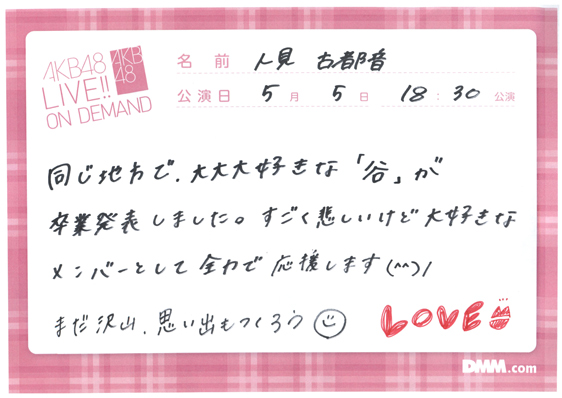 AKB48
LIVE!!
ON DEMAND
AKB
48
名前 人見 古都音
公演日 5月 5日 18:30 公演
同じ地方で、大大大好きな「谷」が
卒業発表しました。すごく悲しいけど大好きな
メンバーとして全力で応援します(^^)/
まだ沢山、思い出もつくろう
LOVE
DMM.com